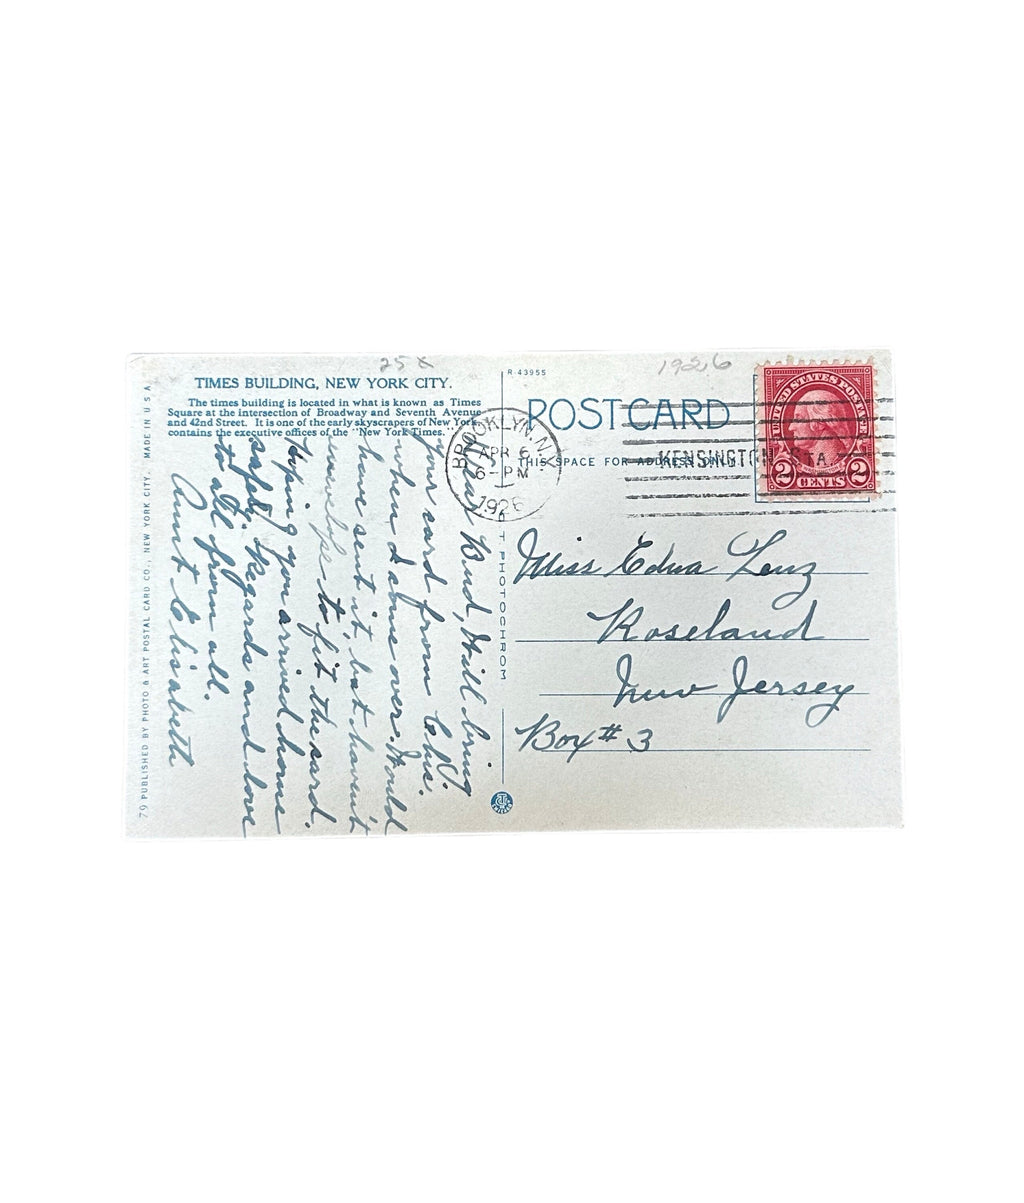 25¢
1926
TIMES BUILDING, NEW YORK CITY.
The times building is located in what is known as Times
Square at the intersection of Broadway and Seventh Avenue
and 42nd Street. It is one of the early skyscrapers of New York,
contains the executive offices of the "New York Times."
R-43955
POST CARD
THIS SPACE FOR ADDRESS ONLY
BROOKLYN, N.Y.
APR 6
6-PM
1926
KENSINGTON STA.
UNITED STATES POSTAGE
2 CENTS 2
Dear Bud, Will bring
your card from Chi.
when I come over. Would
have sent it, but haven't
envelope to fit the card.
Hoping you arrived home
safely. Regards and love
to all from all.
Aunt Elisabeth
Miss Edna Lenz
Roseland
New Jersey
Box # 3
79 PUBLISHED BY PHOTO & ART POSTAL CARD CO., NEW YORK CITY. MADE IN U.S.A.
PHOTOCHROM